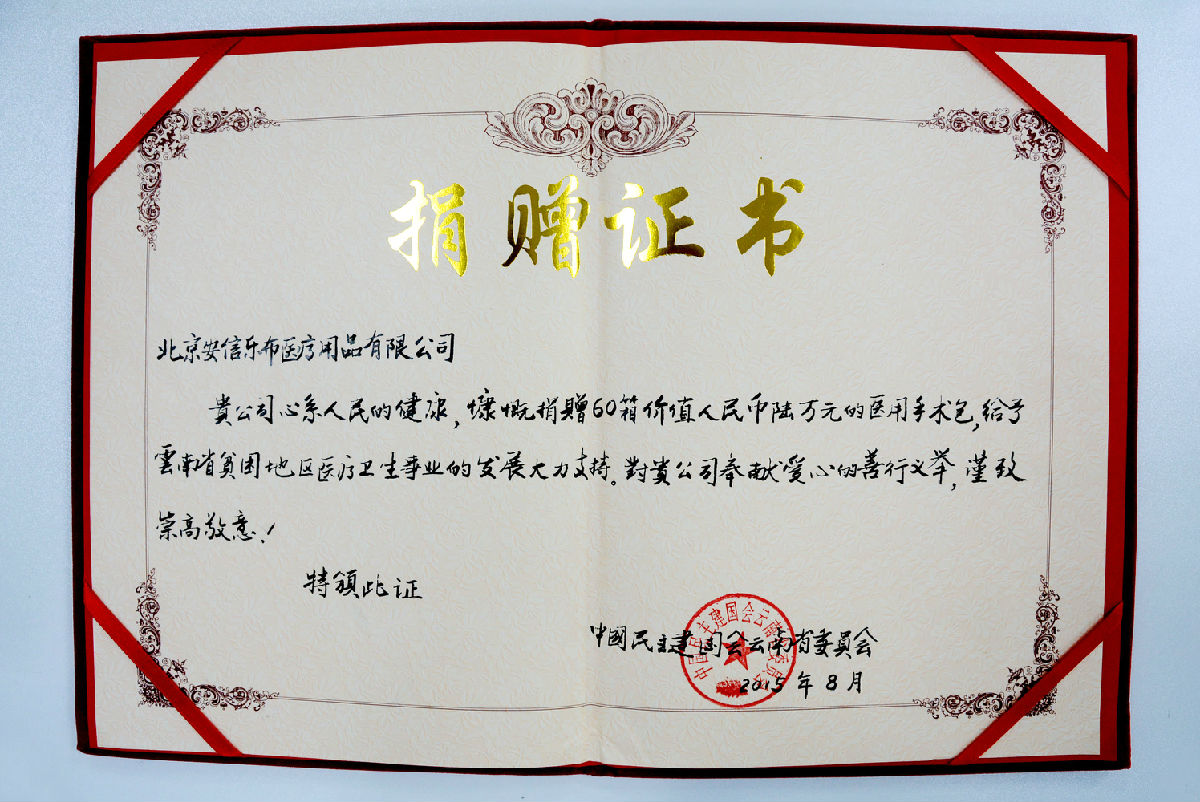 捐赠证书
北京安信乐布医疗用品有限公司
貴公司心系人民的健康，慷慨捐赠60箱价值人民币陆万元的医用手术包，给予
雲南省贫困地区医疗卫生事业的发展大力支持。對貴公司奉献爱心的善行义举，谨致
崇高敬意！
特颁此证
中國民主建国会云南省委員会
2015年8月
中国民主建国会云南省委员会